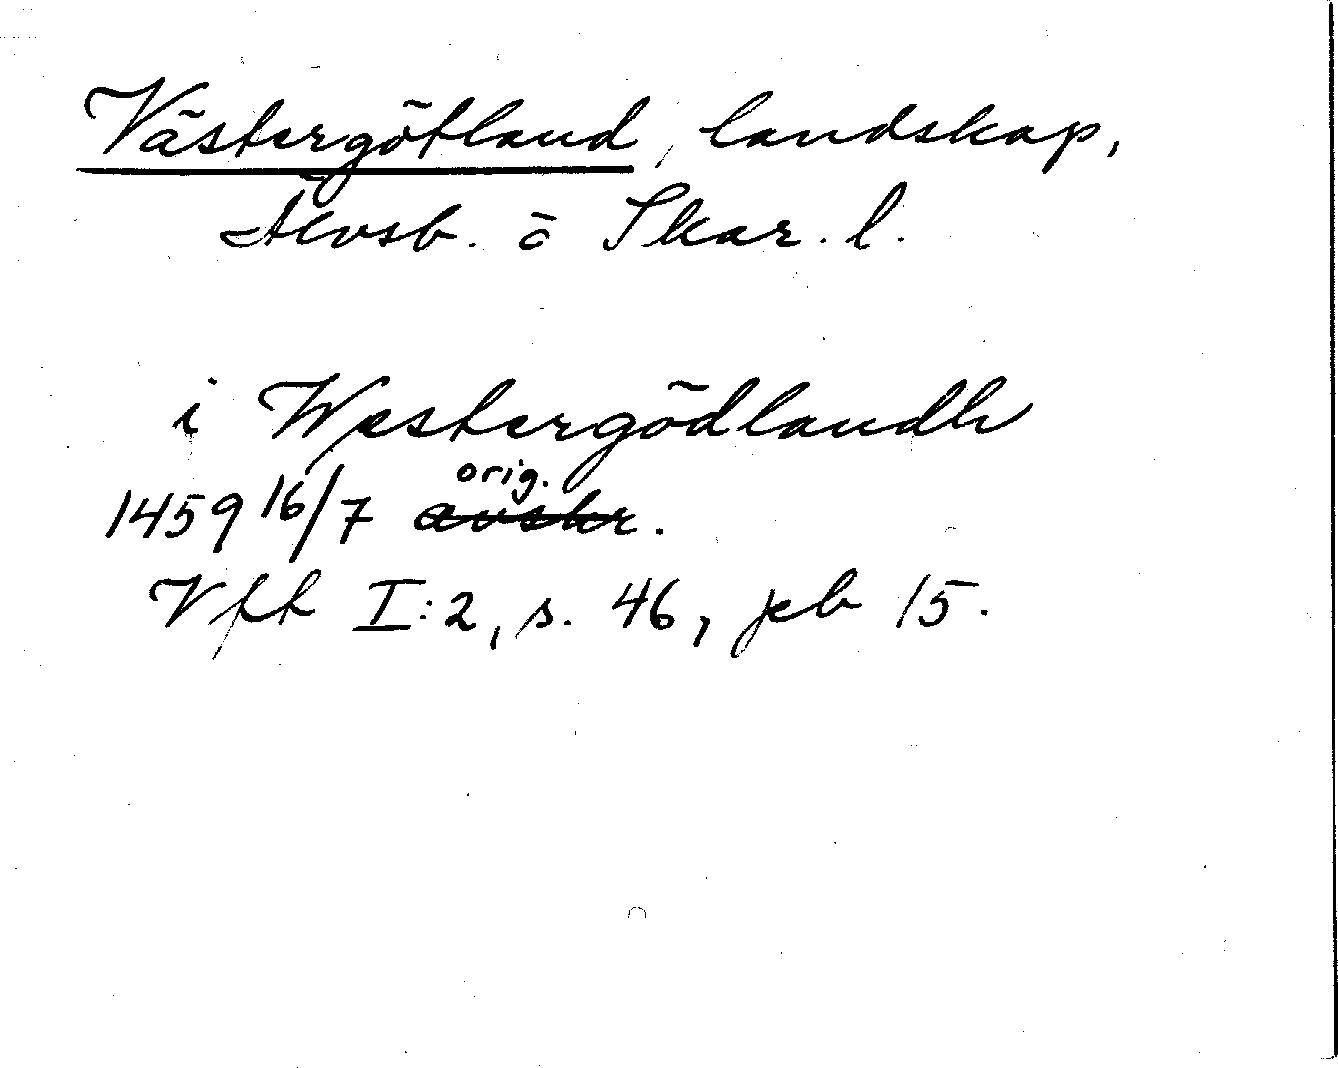 Västergötland, landskap,
Älvsb. o Skar. l.
i Westergödlandh
1459 16/7 orig. avskr.
Vft I:2, s. 46, jeb 15.